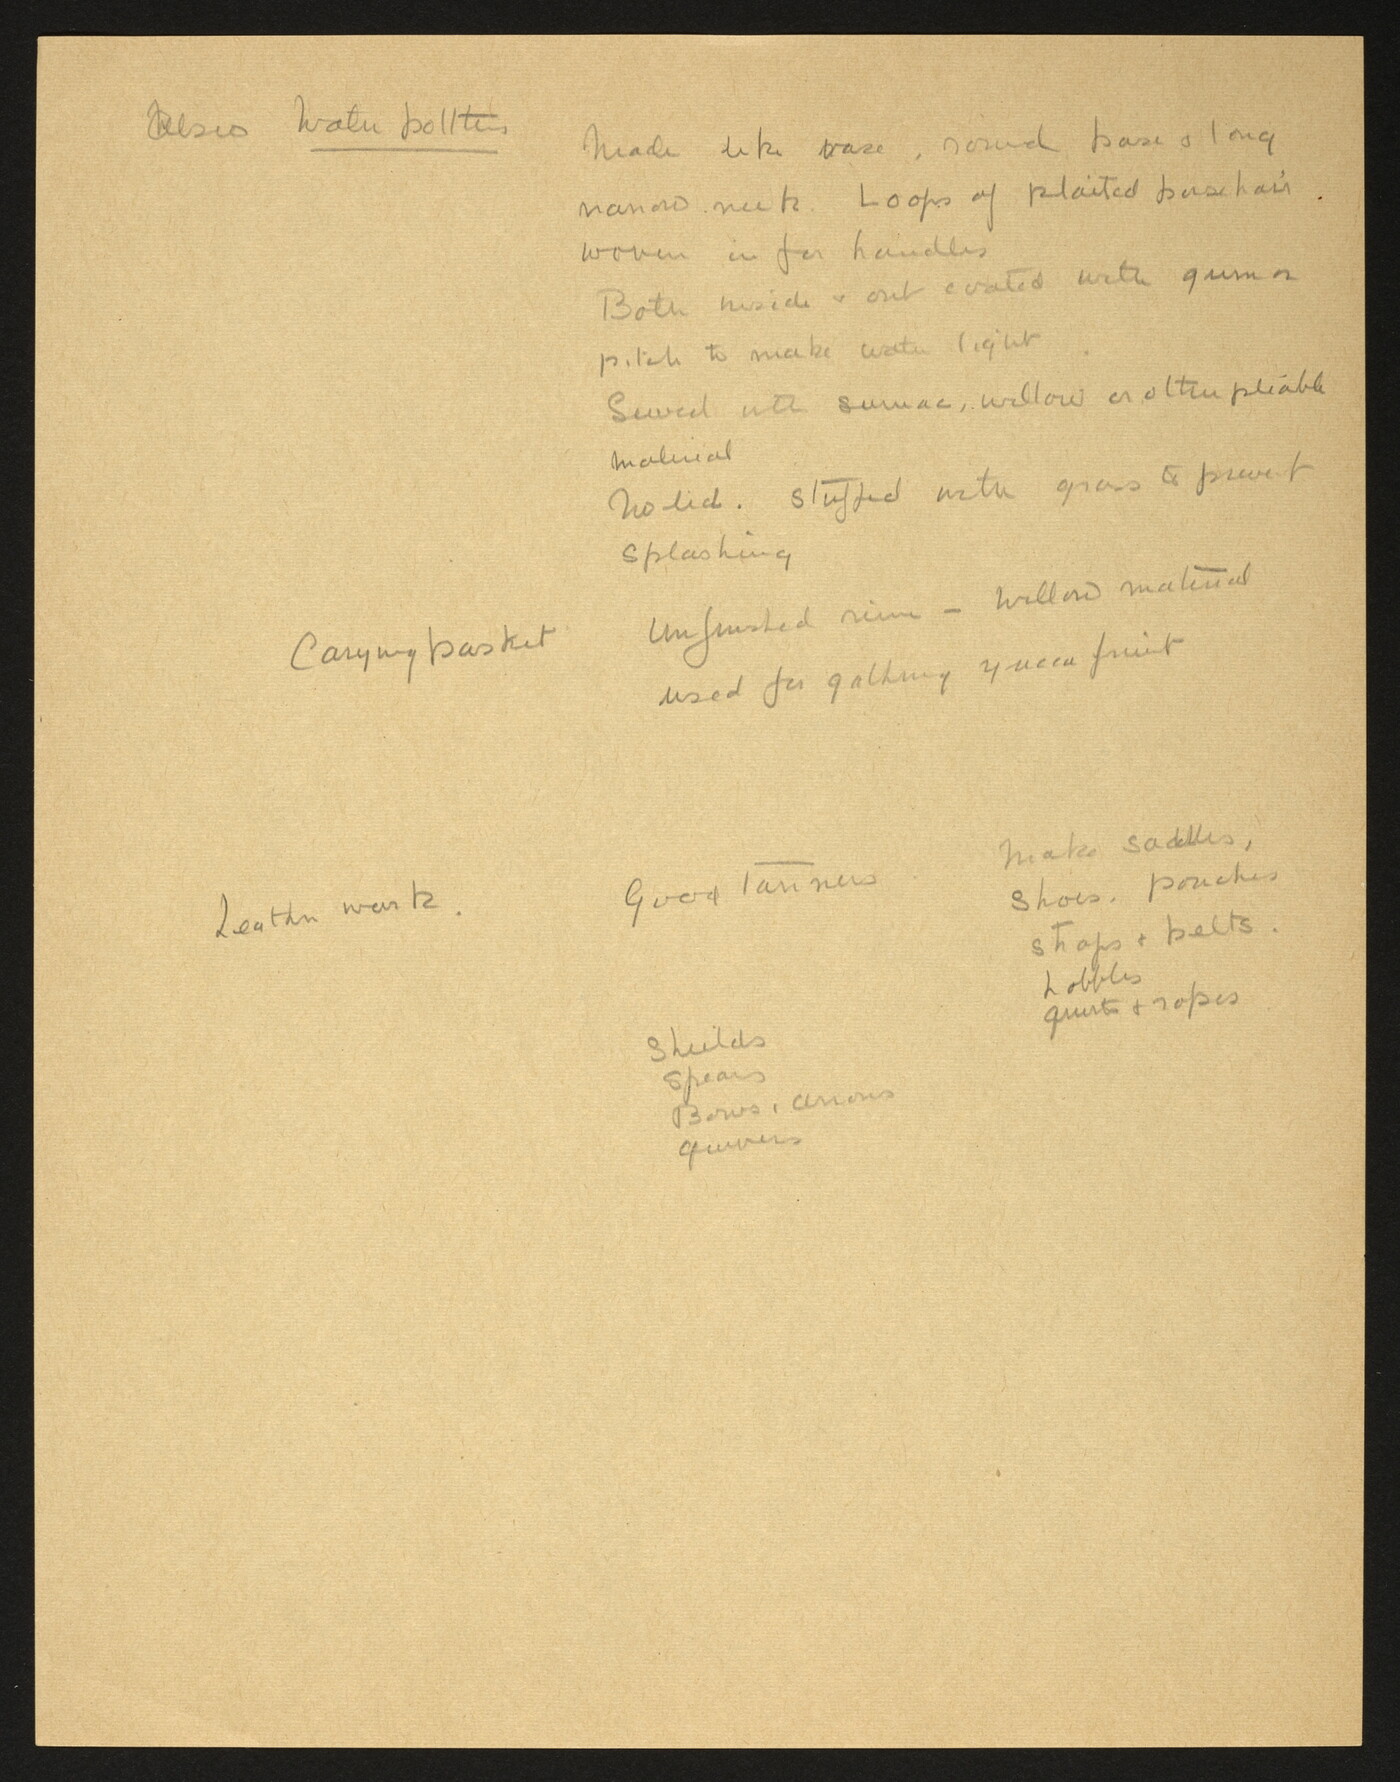 Also Water bottles
Made like vase, round base & long
narrow neck. Loops of plaited horsehair.
woven in for handles
Both inside & out coated with gum or
pitch to make water tight.
Sewed with sumac, willow or other pliable
material
No lid. Stuffed with grass to prevent
splashing
Carying basket
Unfinished rim - Willow material
used for gathring yucca fruit
Leather work.
Good Tanners
Make saddles,
Shoes. pouches
straps & belts.
hobbles
quirts & ropes
Sheilds
Spears
Bows, arrows
quivers